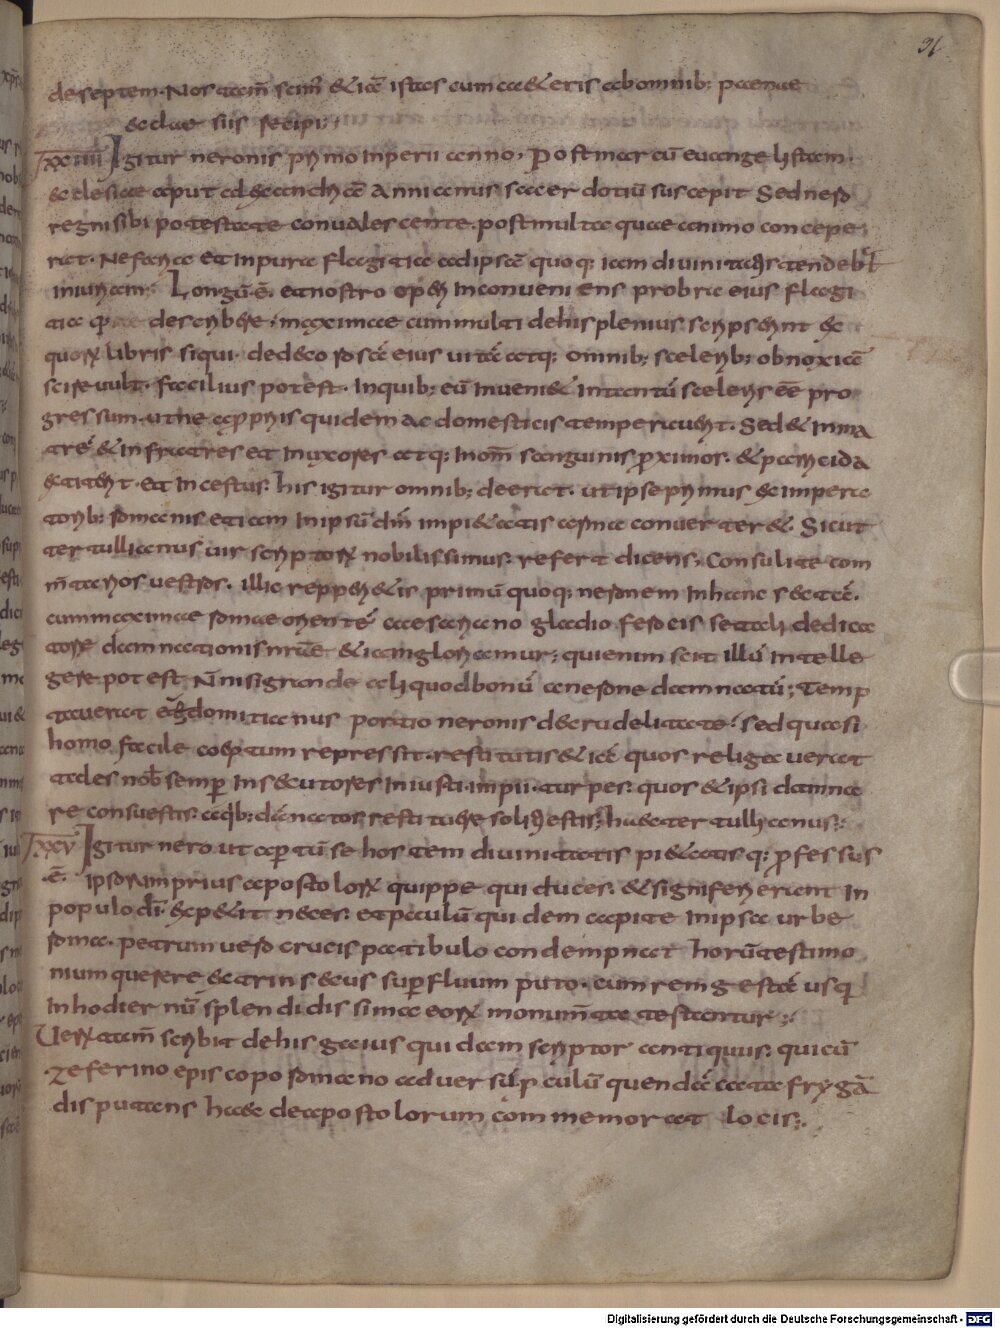 36
de septem. Nos autem scim᷑ & iā istos cum cȩ&eris ab omnib; pȩne
ȩclȩsiis recipi;
XXIIII Igitur neronis primo inperii anno. Post marcū euangelistam.
ȩclesiȩ caput alexandriȩ annianus sacerdotiū suscepit Sed nero
regni sibi potestate conualescente. post multa quae animo concepe
rat. Nefanda et inpura flagitia ad ipsā quoq; iam diuinitatis tendebat
iniuriam; Longū ē. et nostro operi inconueniens probra eius flagi
tia describere. maximae cum multi de his plenius scripserint
quorum libris siqui dedecorosā eius uitā atq; omnib; sceleribus obnoxiā
scire uult. facilius potest. In quib; eū inueni& intantū sceleris ēē pro
gressum. ut ne a propriis quidem ac domesticis temperauerit. Sed & in ma
trē & in fratres et in uxores atq; in om̄ sanguinis proximos. & parricida
extiterit. et incestus; his igitur omnib; deerat. ut ipse primus ex impera
torib; romanis etiam in ipsū dm̄ impi&atis arma conuerter&. Sicut
tertullianus uir scriptorum nobilissimus. refert dicens; Consulite com
mentarios uestros. illic repperi&is primū quoq; neronem in hanc sectā.
cum maximae romae orientē caesariano gladio ferocisse. tali dedica
tore damnationis nrāe & iam gloriamur; qui enim scit illū intelle
gere potest n̄ nisi grande aliquod bonū a nerone damnatū; Temp
tauerat & domitianus portio neronis de crudelitate. sed quasi
homo facile coeptum repressit. restitutis & iā quos religauerat
tales nob̄ semper insecutores iniusti. impii. turpes. quos & ipsi damna
re consuestis. a quib; dānatos restituere soliti estis; haec tertullianus;
XXV Igitur nero ut apertū se hostem diuinitatis pi&atisq; professus
ē. ipsorum prius apostolorum quippe qui duces. & signiferi erant in
populo dī. exp&it neces. et paulū quidem capite in ipsa urbe
roma. petrum uero crucis patibulo condempnat horū testimo
nium querere extrinsecus superfluum puto. cum rem gestā usq
in hodiernū splendidissima eorum monumēta testantur;
Uerum tam̄ scribit de his gaius quidam scriptor antiquus. qui cū
zeferino episcopo romano aduersū p culū quendā cata frygā
disputans haec de apostolorum commemorat locis;
Digitalisierung gefördert durch die Deutsche Forschungsgemeinschaft - DFG